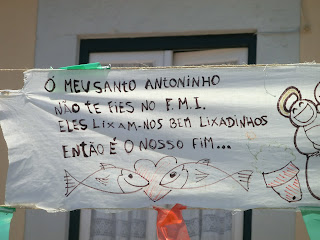 Ó MEU SANTO ANTONINHO
NÃO TE FIES NO F.M.I.
ELES LIXAM-NOS BEM LIXADINHOS
ENTÃO É O NOSSO FIM...